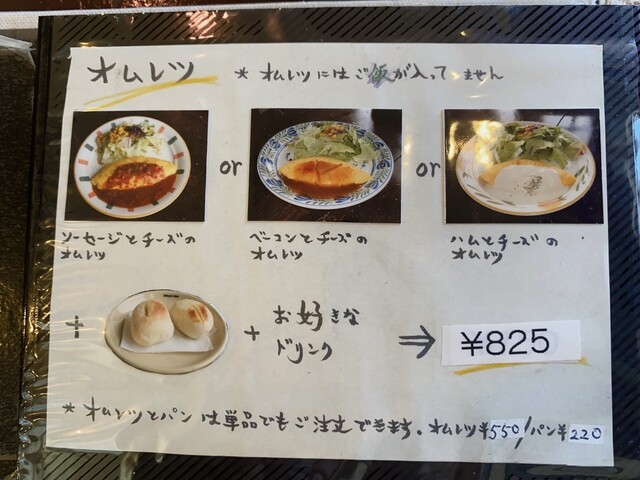 オムレツ ＊オムレツにはご飯が入ってません
or or
ソーセージとチーズの
オムレツ
ベーコンとチーズの
オムレツ
ハムとチーズの
オムレツ
+ + お好きな
ドリンク
⇒ ¥825
＊オムレツとパンは単品でもご注文できます。オムレツ¥550/パン¥220